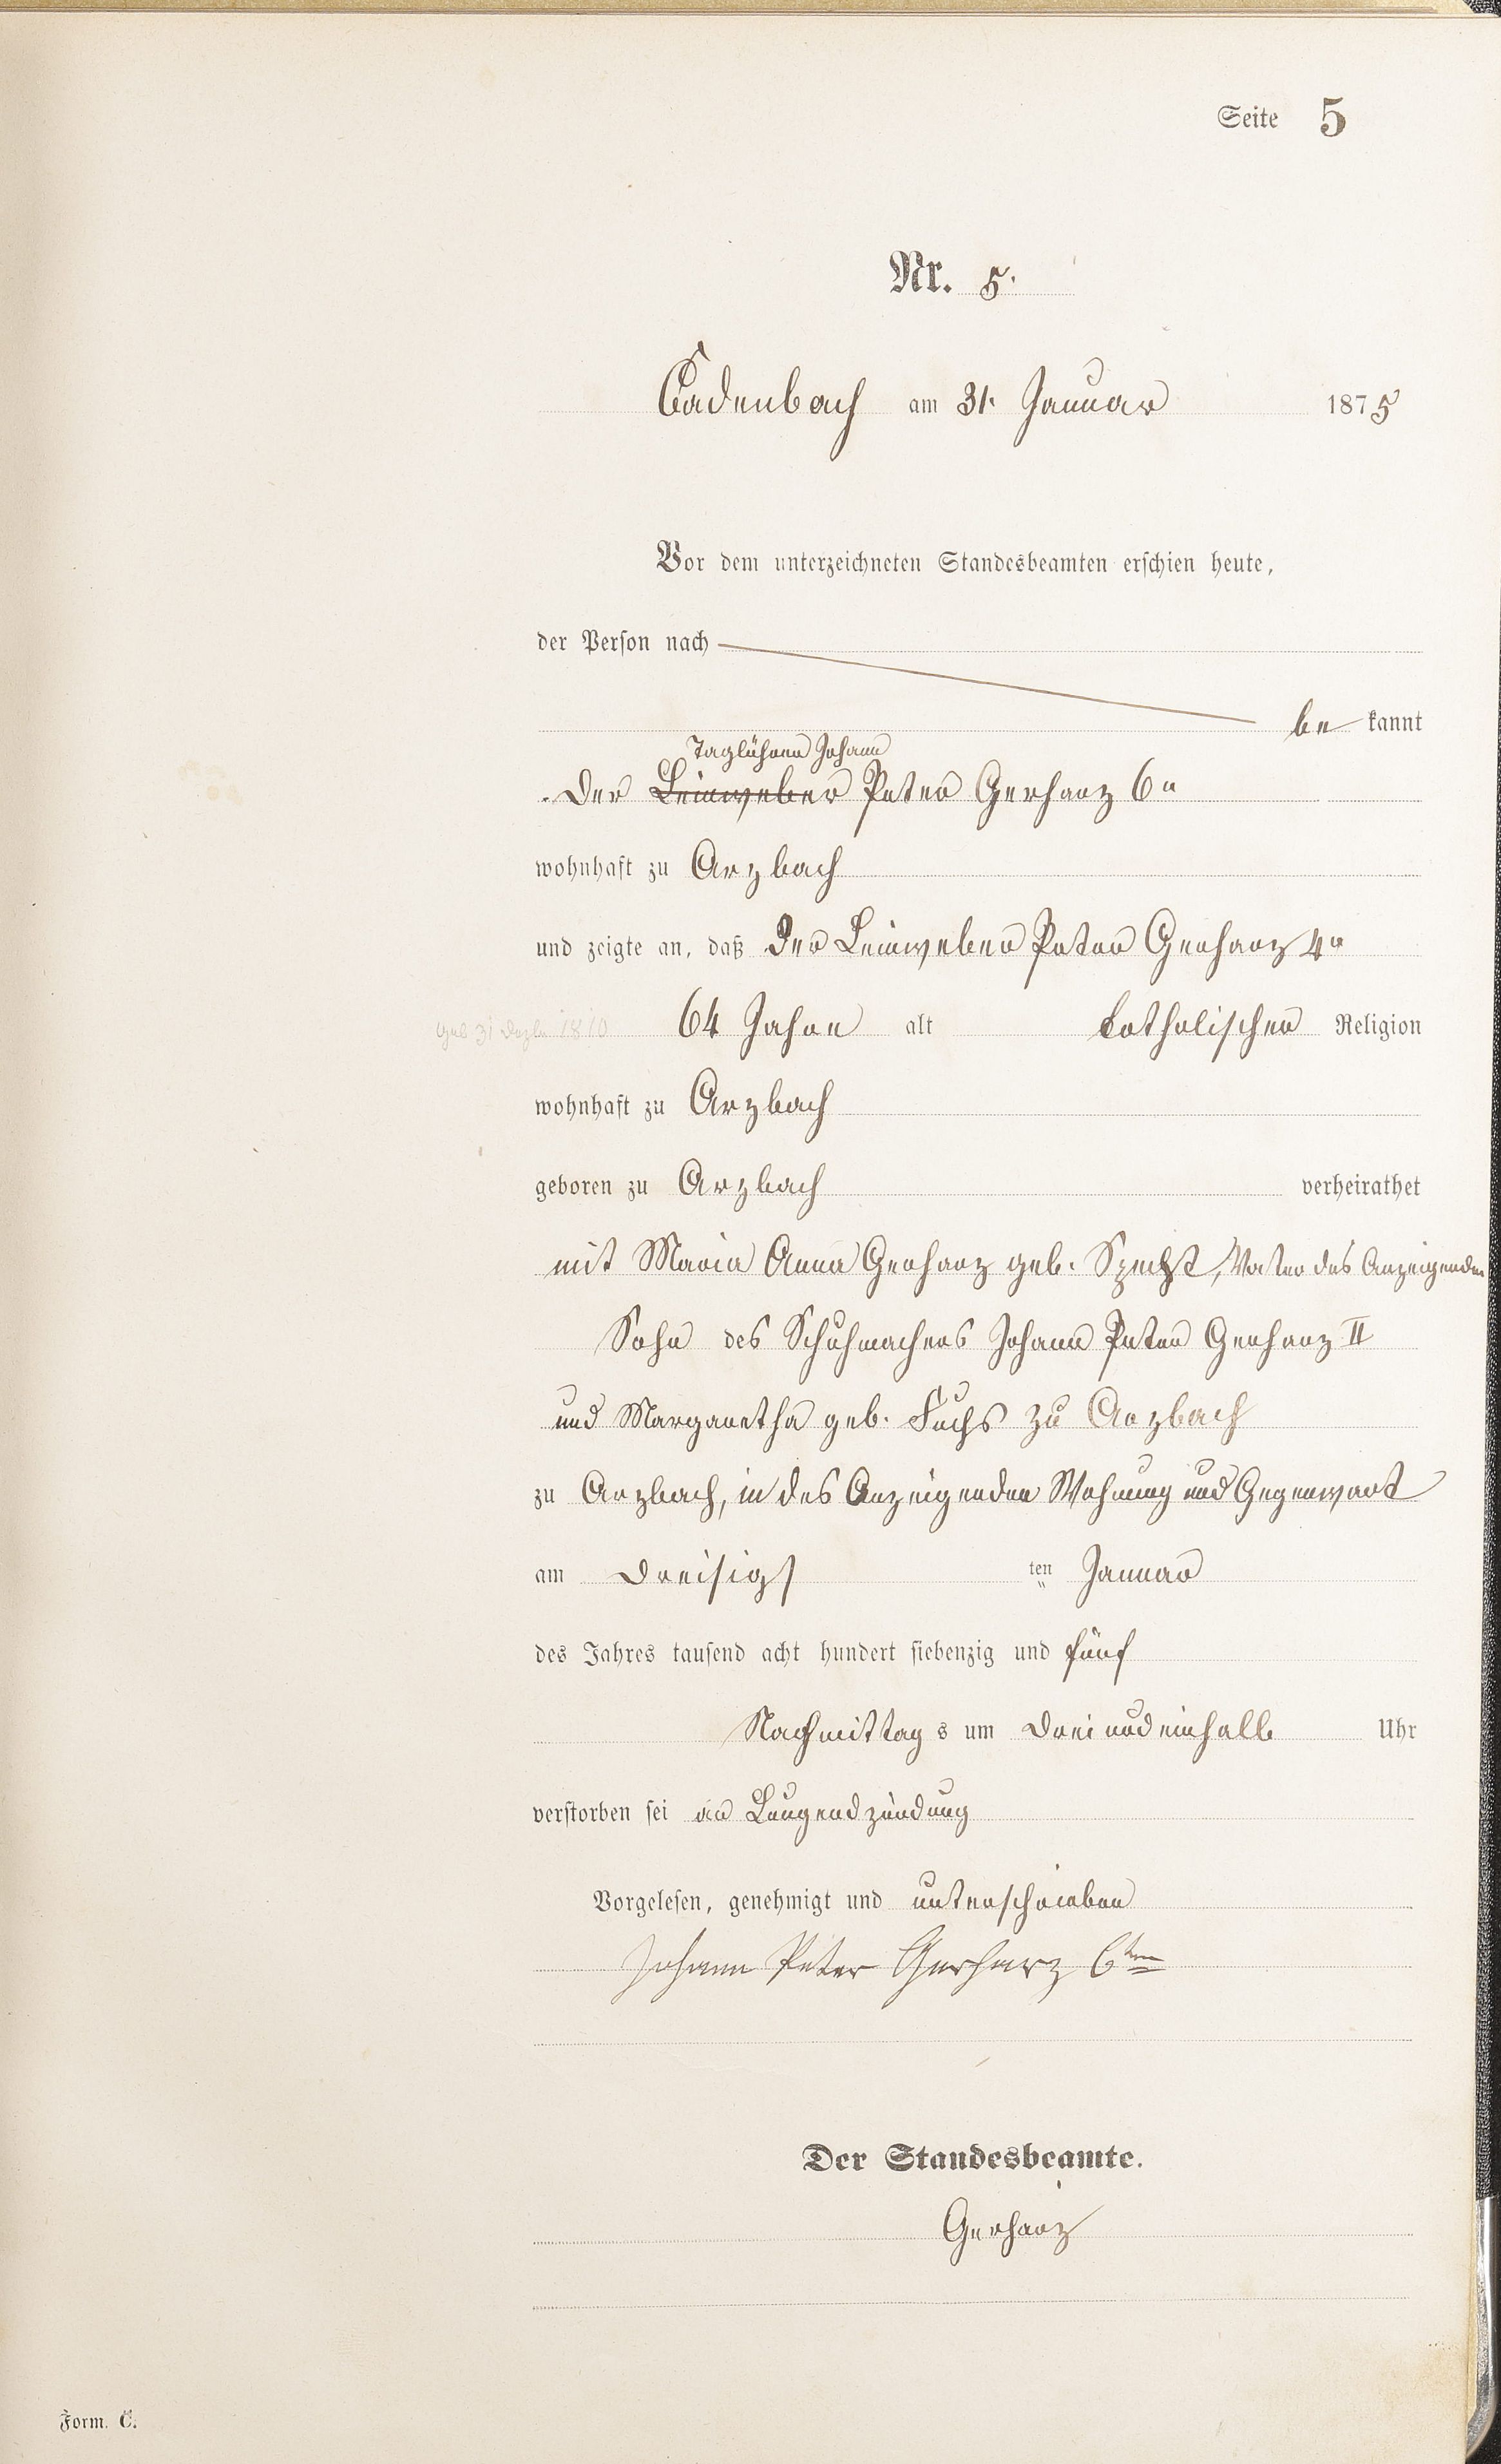 Seite 5
Nr. 5.
Cadenbach am 31. Januar 1875
Vor dem unterzeichneten Standesbeamten erschien heute,
der Person nach
be kannt
Taglöhner Johann
Der Leinweber Peter Gerharz 6r
wohnhaft zu Arzbach
und zeigte an, daß der Leinweber Peter Gerharz 4r
geb 31 Dezbr 1810 64 Jahre alt katholischer Religion
wohnhaft zu Arzbach
geboren zu Arzbach verheirathet
mit Maria Anna Gerharz geb. Specht, Vater des Anzeigenden
Sohn des Schuhmachers Johann Peter Gerharz II
und Margaretha geb. Fuchs zu Arzbach
zu Arzbach, in des Anzeigenden Wohnung und Gegenwart
am Dreisigs ten Januar
des Jahres tausend acht hundert siebenzig und fünf
Nachmittag s um Drei und einhalb Uhr
verstorben sei an Lungendzündung
Vorgelesen, genehmigt und unterschrieben
Johann Peter Gerharz 6ter
Der Standesbeamte.
Gerharz
Form. C.